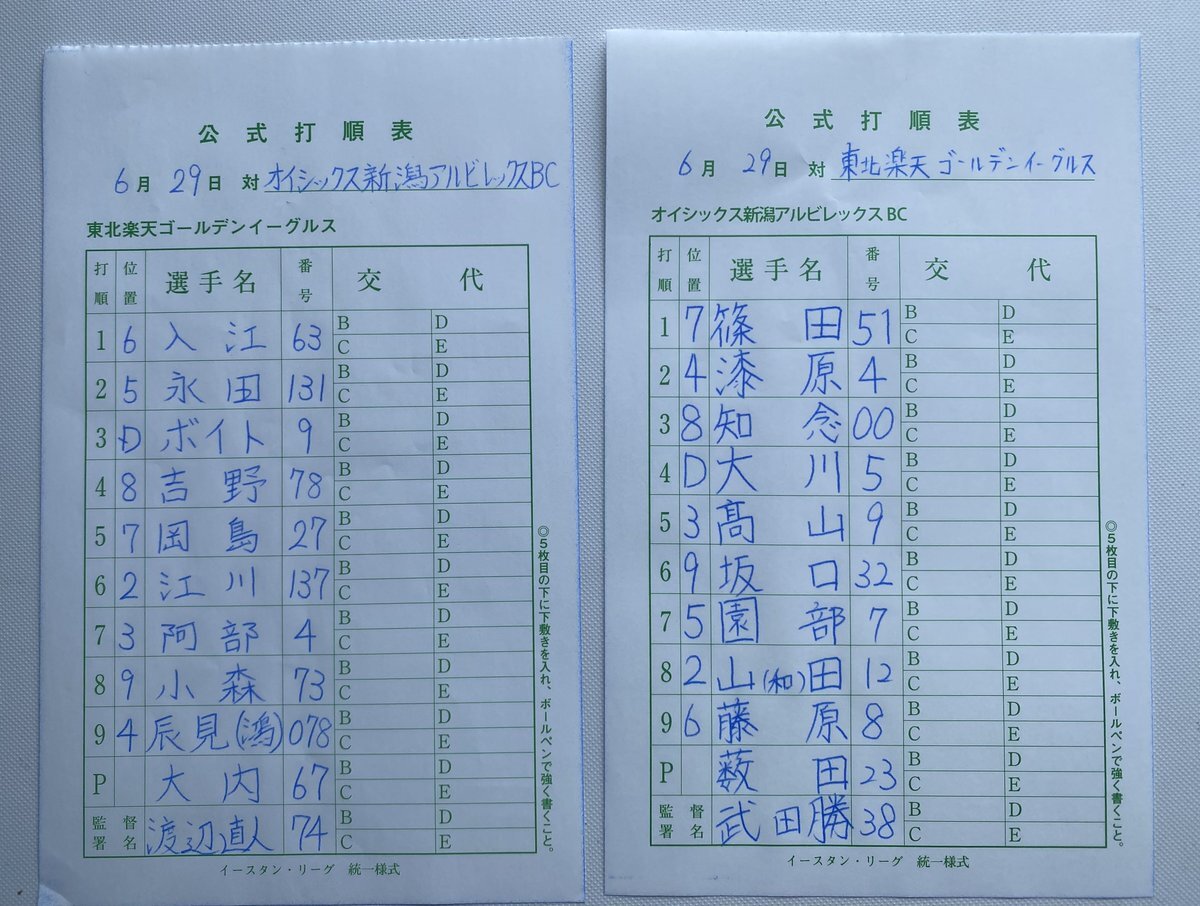 公式打順表
6月29日 対 オイシックス新潟アルビレックスBC
東北楽天ゴールデンイーグルス
打順 位置 選手名 番号 交代
1 6 入江 63 B D C E
2 5 永田 131 B D C E
3 D ボイト 9 B D C E
4 8 吉野 78 B D C E
5 7 岡島 27 B D C E
6 2 江川 137 B D C E
7 3 阿部 4 B D C E
8 9 小森 73 B D C E
9 4 辰見(鴻) 078 B D C E
P 大内 67 B D C E
監督署名 渡辺直人 74 B D C E
イースタン・リーグ 統一様式
◎5枚目の下に下敷きを入れ、ボールペンで強く書くこと。
公式打順表
6月29日 対 東北楽天ゴールデンイーグルス
オイシックス新潟アルビレックスBC
打順 位置 選手名 番号 交代
1 7 篠田 51 B D C E
2 4 漆原 4 B D C E
3 8 知念 00 B D C E
4 D 大川 5 B D C E
5 3 髙山 9 B D C E
6 9 坂口 32 B D C E
7 5 園部 7 B D C E
8 2 山(和)田 12 B D C E
9 6 藤原 8 B D C E
P 薮田 23 B D C E
監督署名 武田勝 38 B D C E
イースタン・リーグ 統一様式
◎5枚目の下に下敷きを入れ、ボールペンで強く書くこと。